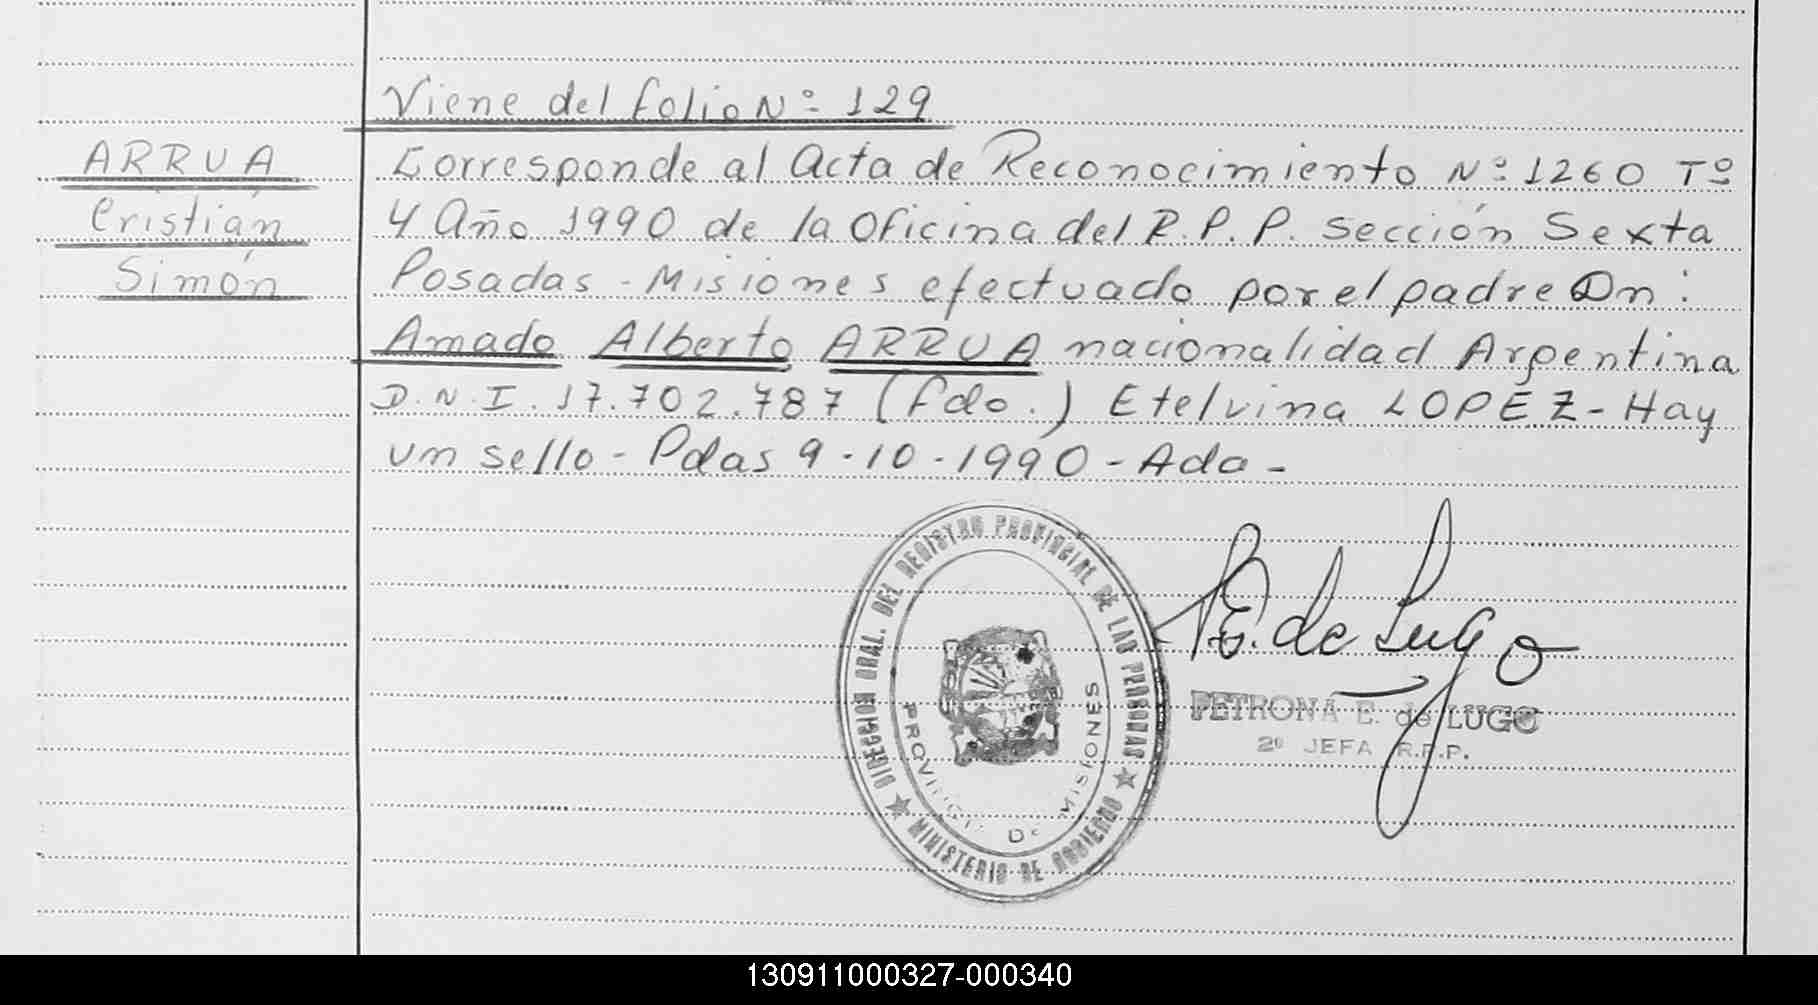 Viene del folio Nº 129
ARRUA
Cristián
Simón
Corresponde al Acta de Reconocimiento Nº 1260 Tº
4 Año 1990 de la Oficina del R.P.P. Sección Sexta
Posadas - Misiones efectuado por el padre Dn:
Amado Alberto ARRUA nacionalidad Argentina
D.N.I. 17.702.787 (fdo.) Etelvina LOPEZ - Hay
un sello - Pdas 9-10-1990 - Ada -
DIRECCION GRAL. DEL REGISTRO PROVINCIAL DE LAS PERSONAS
MINISTERIO DE GOBIERNO
PROVINCIA DE MISIONES
P.E. de Lugo
PETRONA E. de LUGO
2º JEFA R.P.P.
130911000327-000340